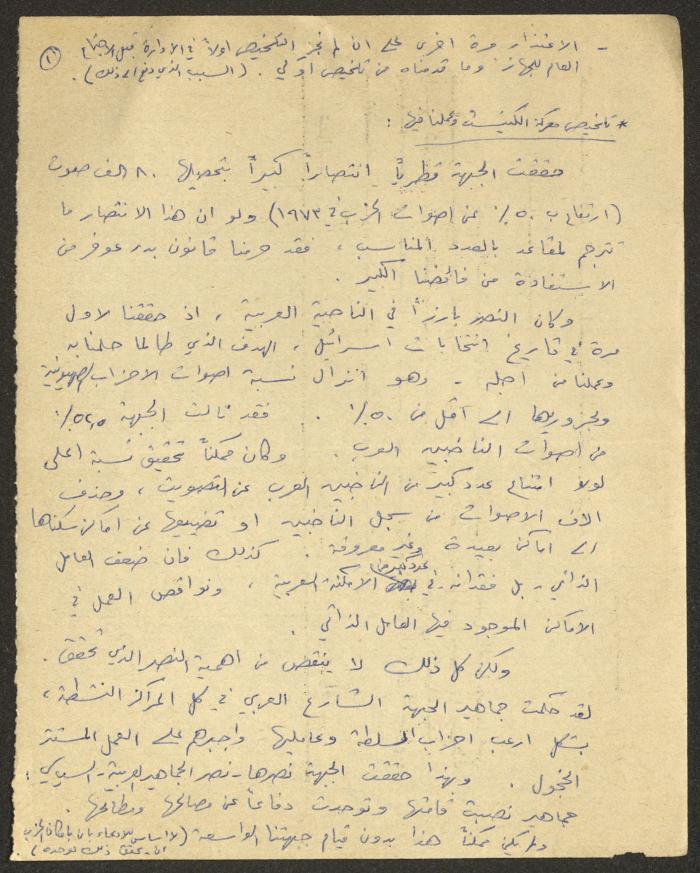 ١
- الاعتذار مرة اخرى على ان لم نجر التلخيص اولاً في الادارة قبل الاجتماع
العام للجهاز وما قدمناه من تلخيص اولي. (السبب الذي دفع الى ذلك).
* تلخيص معركة الكنيست وعملنا فيها:
حققت الجبهة قطرياً انتصاراً كبيراً بتحصيلها ٨٠ الف صوت
(ارتفاع ب ٥٠٪ عن اصوات الحزب في ١٩٧٣) ولو ان هذا الانتصار ما
ترجم لمقاعد بالعدد المناسب، فقد حرمنا قانون بدر عوفر من
الاستفادة من فائضنا الكبير.
وكان النصر بارزاً في الناحية العربية، اذ حققنا لاول
مرة في تاريخ انتخابات اسرائيل، الهدف الذي طالما حلمنا به
وعملنا من اجله - وهو انزال نسبة اصوات الاحزاب الصهيونية
ومجروريها الى اقل من ٥٠٪. فقد نالت الجبهة ٥٢,٥٪
من اصوات الناخبين العرب. وكان ممكناً تحقيق نسبة اعلى
لولا امتناع عدد كبير من الناخبين العرب عن التصويت، وحذف
الاف الاصوات من سجل الناخبين او تضييعها عن اماكن سكناها
الى اماكن بعيدة وغير معروفة. كذلك فان ضعف العامل
الذاتي - بل فقدانه - في عدد كبير من الامكنة العربية، ونواقص العمل في
الاماكن الموجود فيها العامل الذاتي.
ولكن كل ذلك لا ينقص من اهمية النصر الذي تحقق.
لقد حكمت جماهير الجبهة الشارع العربي في كل المراكز النشطة،
بشكل ارعب احزاب السلطة وعامليها واجبرهم على العمل المستتر
الخجول. وبهذا حققت الجبهة نصرها - نصر الجماهير العربية - السياسي:
جماهير نصبت قامتها وتوحدت دفاعاً عن مصالحها ومطالبها.
ولم يكن ممكناً هذا بدون قيام جبهتنا الواسعة (لا اساس للادعاء بان بامكان الحزب
ان يحقق ذلك لوحده).